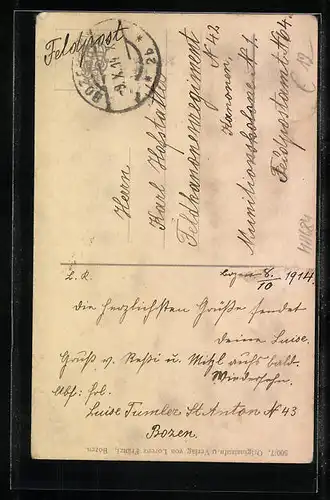 Feldpost
BOZEN
9.X.14
Herrn
Karl Hofstätter
Feldkanonenregiment
N 42
Kanonen
Munitionskolonne N 1.
Feldpostamt N 64.
L. K. Bozen 8./10 1914.
Die herzlichsten Grüße sendet
deine Luise.
Gruß v. Resi u. Mitzl aufs bald.
Wiedersehn.
Abs: Frl.
Luise Tumler St. Anton N 43
Bozen.
5007. Originalaufn. u. Verlag von Lorenz Fränzl, Bozen.